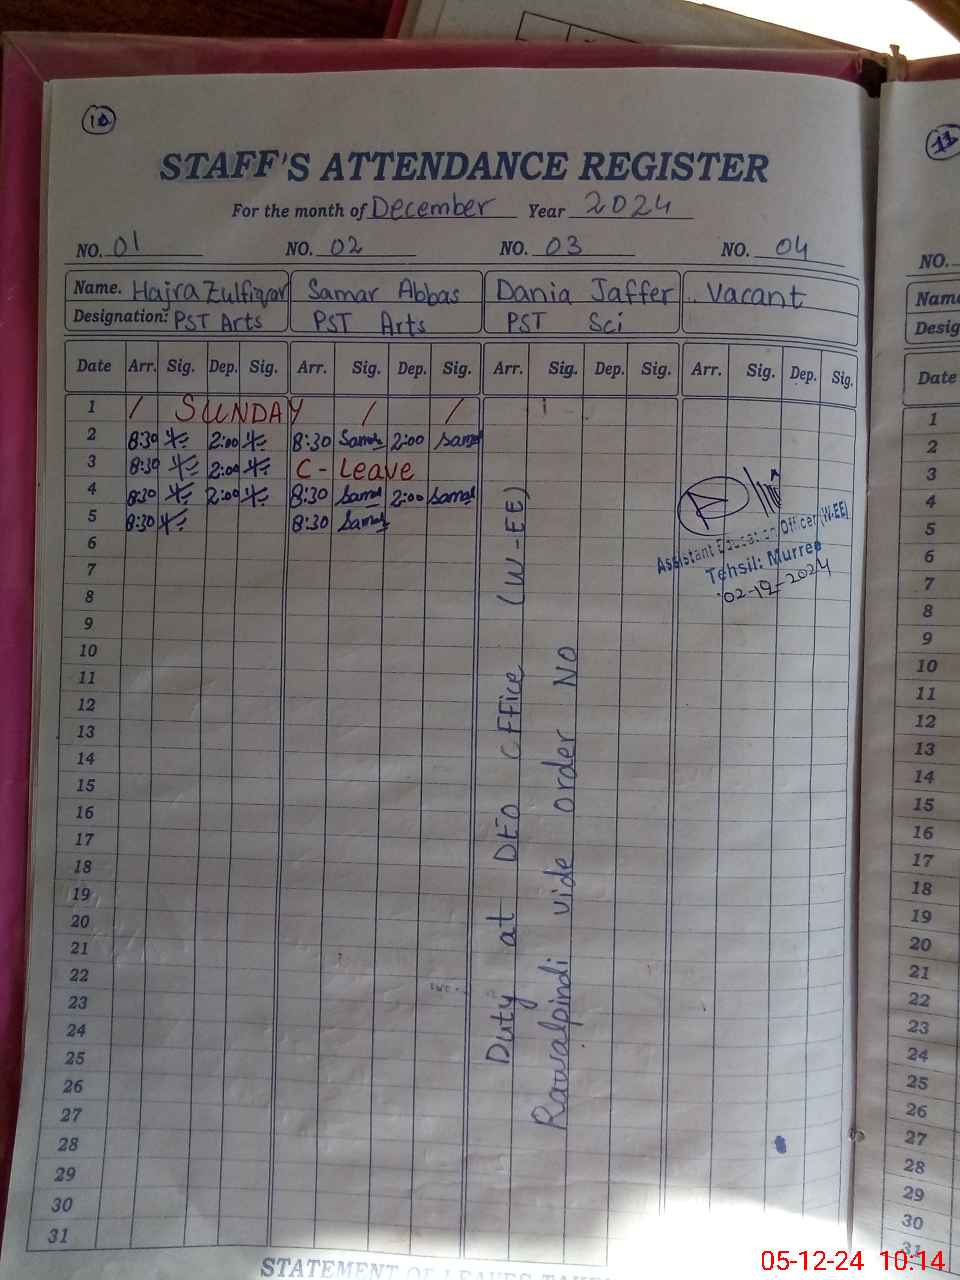 10
STAFF'S ATTENDANCE REGISTER
For the month of December Year 2024
NO. 01 NO. 02 NO. 03 NO. 04
Name. Hajra Zulfiqar Samar Abbas Dania Jaffer Vacant
Designation: PST Arts PST Arts PST Sci
Date Arr. Sig. Dep. Sig. Arr. Sig. Dep. Sig. Arr. Sig. Dep. Sig. Arr. Sig. Dep. Sig.
1 / SUNDAY / /
2 8:30 2:00 8:30 Samar 2:00 Samar
3 8:30 2:00 C-Leave
4 8:30 2:00 8:30 Samar 2:00 Samar
5 8:30 8:30 Samar
6
7
8
9
10
11
12
13
14
15
16
17
18
19
20
21
22
23
24
25
26
27
28
29
30
31
Duty at DEO Office (W-EE)
Rawalpindi vide order NO
Assistant Education Officer (W-EE)
Tehsil: Murree
02-12-2024
11
NO.
Name
Desig
Date
1
2
3
4
5
6
7
8
9
10
11
12
13
14
15
16
17
18
19
20
21
22
23
24
25
26
27
28
29
30
31
STATEMENT OF LEAVES TAKEN
05-12-24 10:14